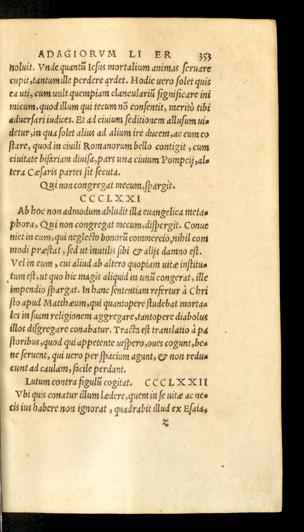 ADAGIORVM LI ER 353
noluit. Vnde quantũ Iesus mortalium animas seruare
cupit, tantum ille perdere ardet. Hodie uero solet quis
ea uti, cum uult quempiam clanculariũ significare ini
micum, quod illum qui tecum nõ consentit, meritò tibi
aduersari iudices. Et ad ciuium seditionem allusum ui⸗
detur, in qua solet alius ad alium ire ducem, ac cum eo
stare, quod in ciuili Romanorum bello contigit, cum
ciuitate bifariam diuisa, pars una ciuium Pompeij, al⸗
tera Cæsaris partes sit secuta.
Qui non congregat mecum, spargit.
CCCLXXI
Ab hoc non admodum abludit illa euangelica meta⸗
phora, Qui non congregat mecum, dispergit. Conue
niet in eum, qui neglecto bonorũ commercio, nihil com
modi præstat, sed ut inutilis sibi & alijs damno est.
Vel in eum, cui aliud ab altero quopiam uitæ institu⸗
tum est, ut quo hic magis aliquid in unũ congerat, ille
impendio spargat. In hanc sententiam refertur à Chri
sto apud Matthæum, qui quantopere studebat morta⸗
les in suam religionem aggregare, tantopere diabolus
illos disgregare conabatur. Tracta est translatio à pa
storibus, quod qui appetente uespero, oues cogunt, be⸗
ne seruent, qui uero per spacium agunt, & non redu⸗
cunt ad caulam, facile perdant.
Lutum contra figulũ cogitat. CCCLXXII
Vbi quis conatur illum lædere, quem in se uitæ ac ne⸗
cis ius habere non ignorat, quadrabit illud ex Esaia,
z